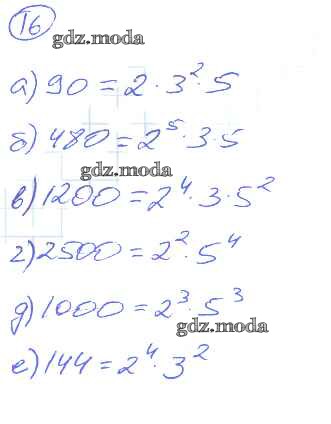 16
gdz.moda
а) 90 = 2 · 3² · 5
б) 480 = 2⁵ · 3 · 5
gdz.moda
в) 1200 = 2⁴ · 3 · 5²
г) 2500 = 2² · 5⁴
д) 1000 = 2³ · 5³
gdz.moda
е) 144 = 2⁴ · 3²